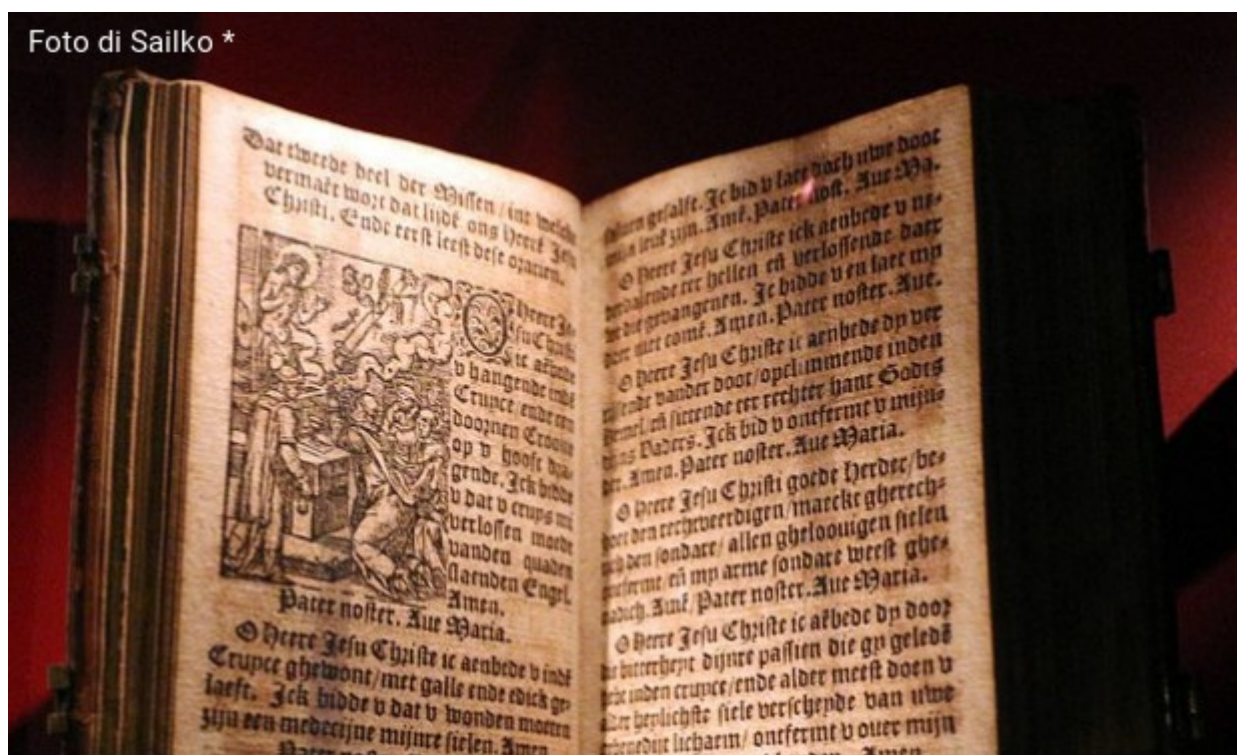 Foto di Sailko *
Dat tweede deel der Missen / int welck
vermaēt wort dat lijdē ons Heerē Jesu
Christi. Ende eerst leest dese oratien.
O Heere Je-
su Christe
ic aēbede
v hangende indē
Cruyce ende een
doornen Croone
op v hooft dra-
gende. Ick bidde
v dat v cruys mi
verlossen moete
vanden quaden
slaenden Engel.
Amen.
Pater noster. Aue Maria.
O Heere Jesu Christe ic aenbede v indē
Cruyce ghewont / met galle ende edick ge-
laeft. Ick bidde v dat v wonden moeten
zijn een medecijne mijnre sielen. Amen
gesalft. Ic bid v laet doch uwe doot
mijn leuē zijn. Amē. Pater nost. Aue Ma.
O Heere Jesu Christe ick aenbede v ne-
derdalende ter hellen eñ verlossende daer
die geuangenen. Ic bidde v en laet my
daer niet comē. Amen. Pater noster. Aue.
O Heere Jesu Christe ic aenbede dy ver
rijsende vander doot / opclimmende inden
hemel / eñ sittende ter rechter hant Godts
Vaders. Ick bid v ontfermt v mijn-
der. Amen. Pater noster. Aue Maria.
O Heere Jesu Christi goede Herder / be-
hoet den rechtveerdigen / maeckt gherech-
den sondare / allen gheloouigen sielen
ontferme / eñ my arme sondare weest ghe-
nadich. Amē. Pater noster. Aue Maria.
O Heere Jesu Christe ic aēbede dy door
die bitterheyt dijnre passien die gy geledē
hebt inden cruyce / ende alder meest doen v
alder heylichste siele verscheyde van uwe
ghebenedijt lichaem / ontfermt v ouer mijn
Amen.